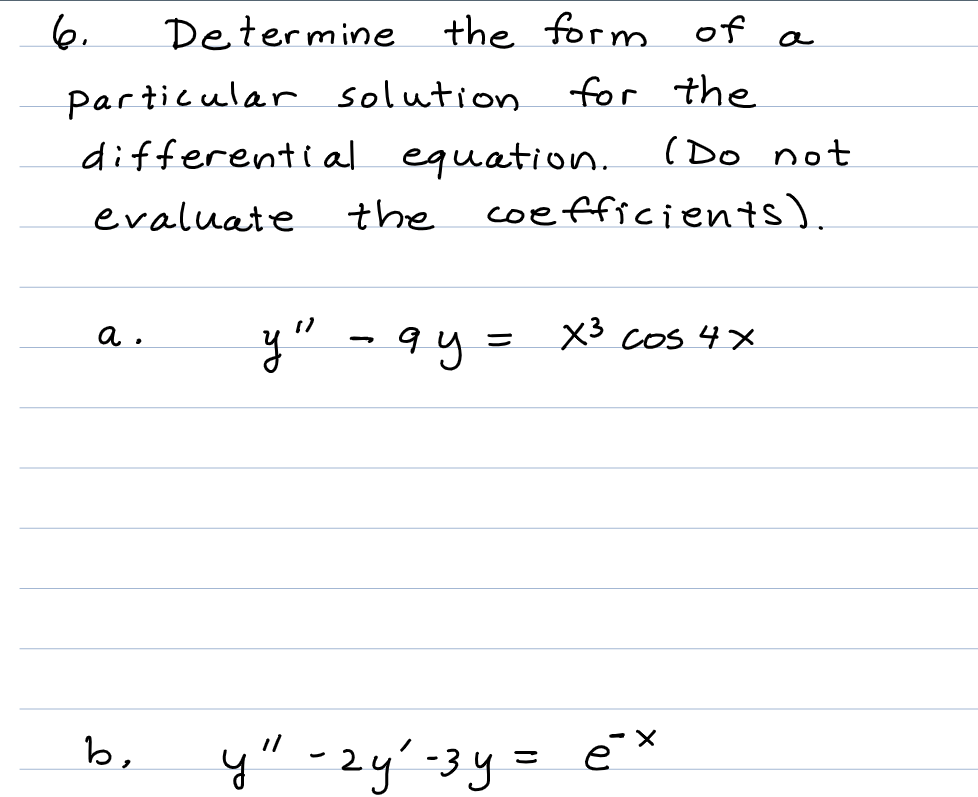 6. Determine the form of a
particular solution for the
differential equation. (Do not
evaluate the coefficients).
a. y" - 9y = x³ cos 4x
b. y" - 2y' - 3y = e⁻ˣ